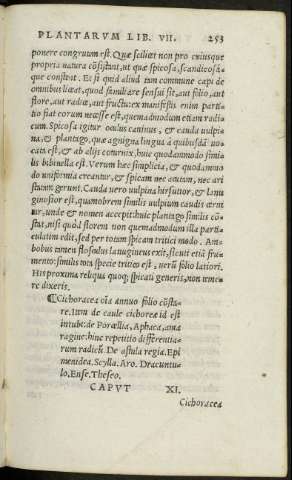 PLANTARVM LIB. VII. 253
ponere congruum est. Quæ scilicet non pro cuiusque
propria natura cõsistant, ut quæ spicosa, scandicosa-
que constent. Et si quid aliud tum commune capi de
omnibus liceat, quod familiare sensui sit, aut folio, aut
flore, aut radice, aut fructu: ex manifestis enim parti-
tio fiat eorum necesse est, quemadmodum etiam radi-
cum. Spicosa igitur oculus caninus, & cauda uulpi-
na, & plantago, quæ agnina lingua à quibusdã uo-
cata est, & ab alijs coturnix, huic quodammodo simi-
lis bibinella est. Verum hæc simplicia, & quodammo
do uniformia creantur, & spicam nec acutam, nec ari
stosam gerunt. Cauda uero uulpina hirsutior, & lanu
ginosior est, quamobrem similis uulpium caudis cerni
tur, unde & nomen accepit: huic plantago similis cõ-
stat, nisi quòd florem non quemadmodum illa parti-
culatim edit, sed per totam spicam tritici modo. Am-
bobus tamen flosculus lanugineus exit, sicuti etiã fru-
mento: similis tota specie tritico est, uerũ folio latiori.
His proxima reliqua quoq; spicati generis, non teme-
re dixeris.
¶ Cichoracea oĩa annuo folio cõsta-
re. Item de caule cichoreæ id est
intubi: de Porcellia, Aphaca, ama
ragine: hinc repetitio differentia-
rum radicũ. De astula regia. Epi
menidea. Scylla. Aro. Dracuncu-
lo. Ense. Theseo.
CAPVT XI.
Cichoracea